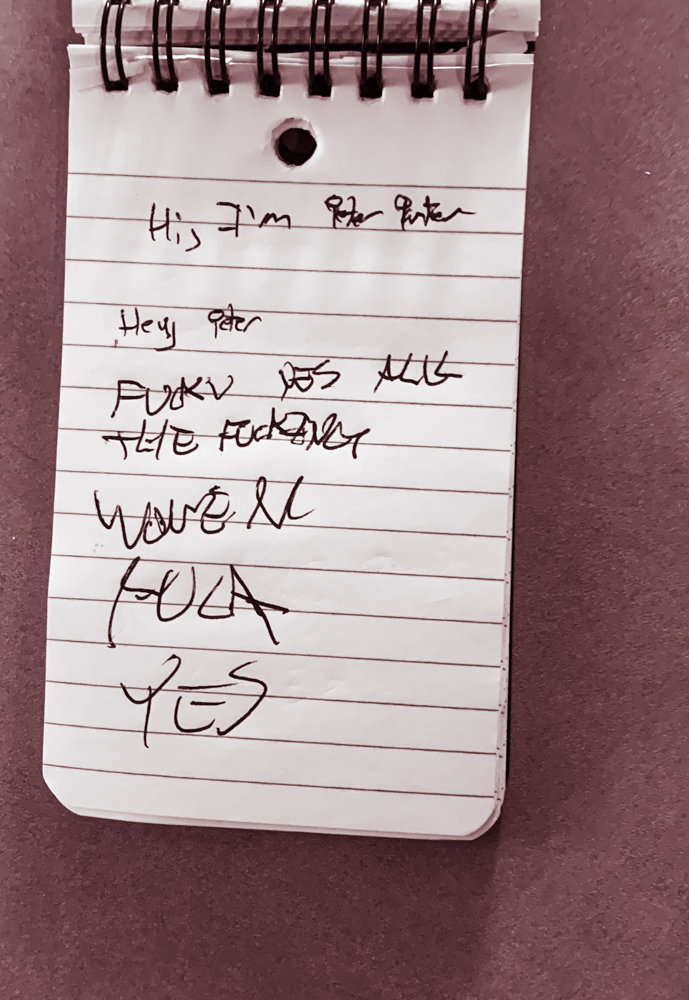 Hi, I'm Peter Parker
Hey Peter
FUCK YES ALL
THE FUCKING
WOMEN
FUCK
YES